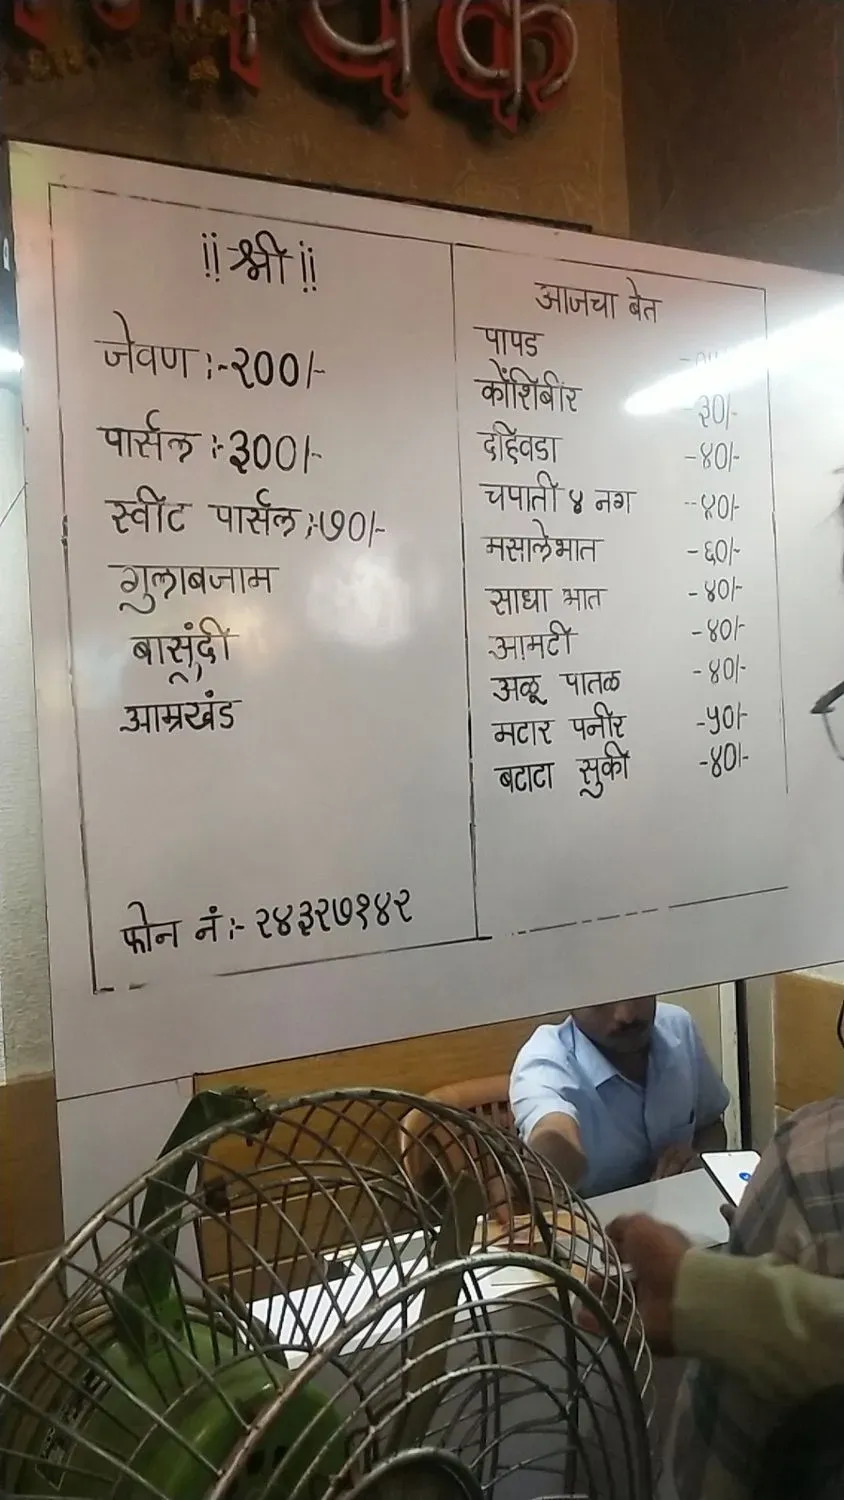 !! श्री !!
जेवण :- २००/-
पार्सल :- ३००/-
स्वीट पार्सल :- ७०/-
गुलाबजाम
बासूंदी
आम्रखंड
फोन नं :- २४३२७१४२
आजचा बेत
पापड
कोंशिबीर -३०/-
दहिवडा -४०/-
चपाती ४ नग -४०/-
मसालेभात -६०/-
साधा भात -४०/-
आमटी -४०/-
अळू पातळ -४०/-
मटार पनीर -५०/-
बटाटा सुकी -४०/-